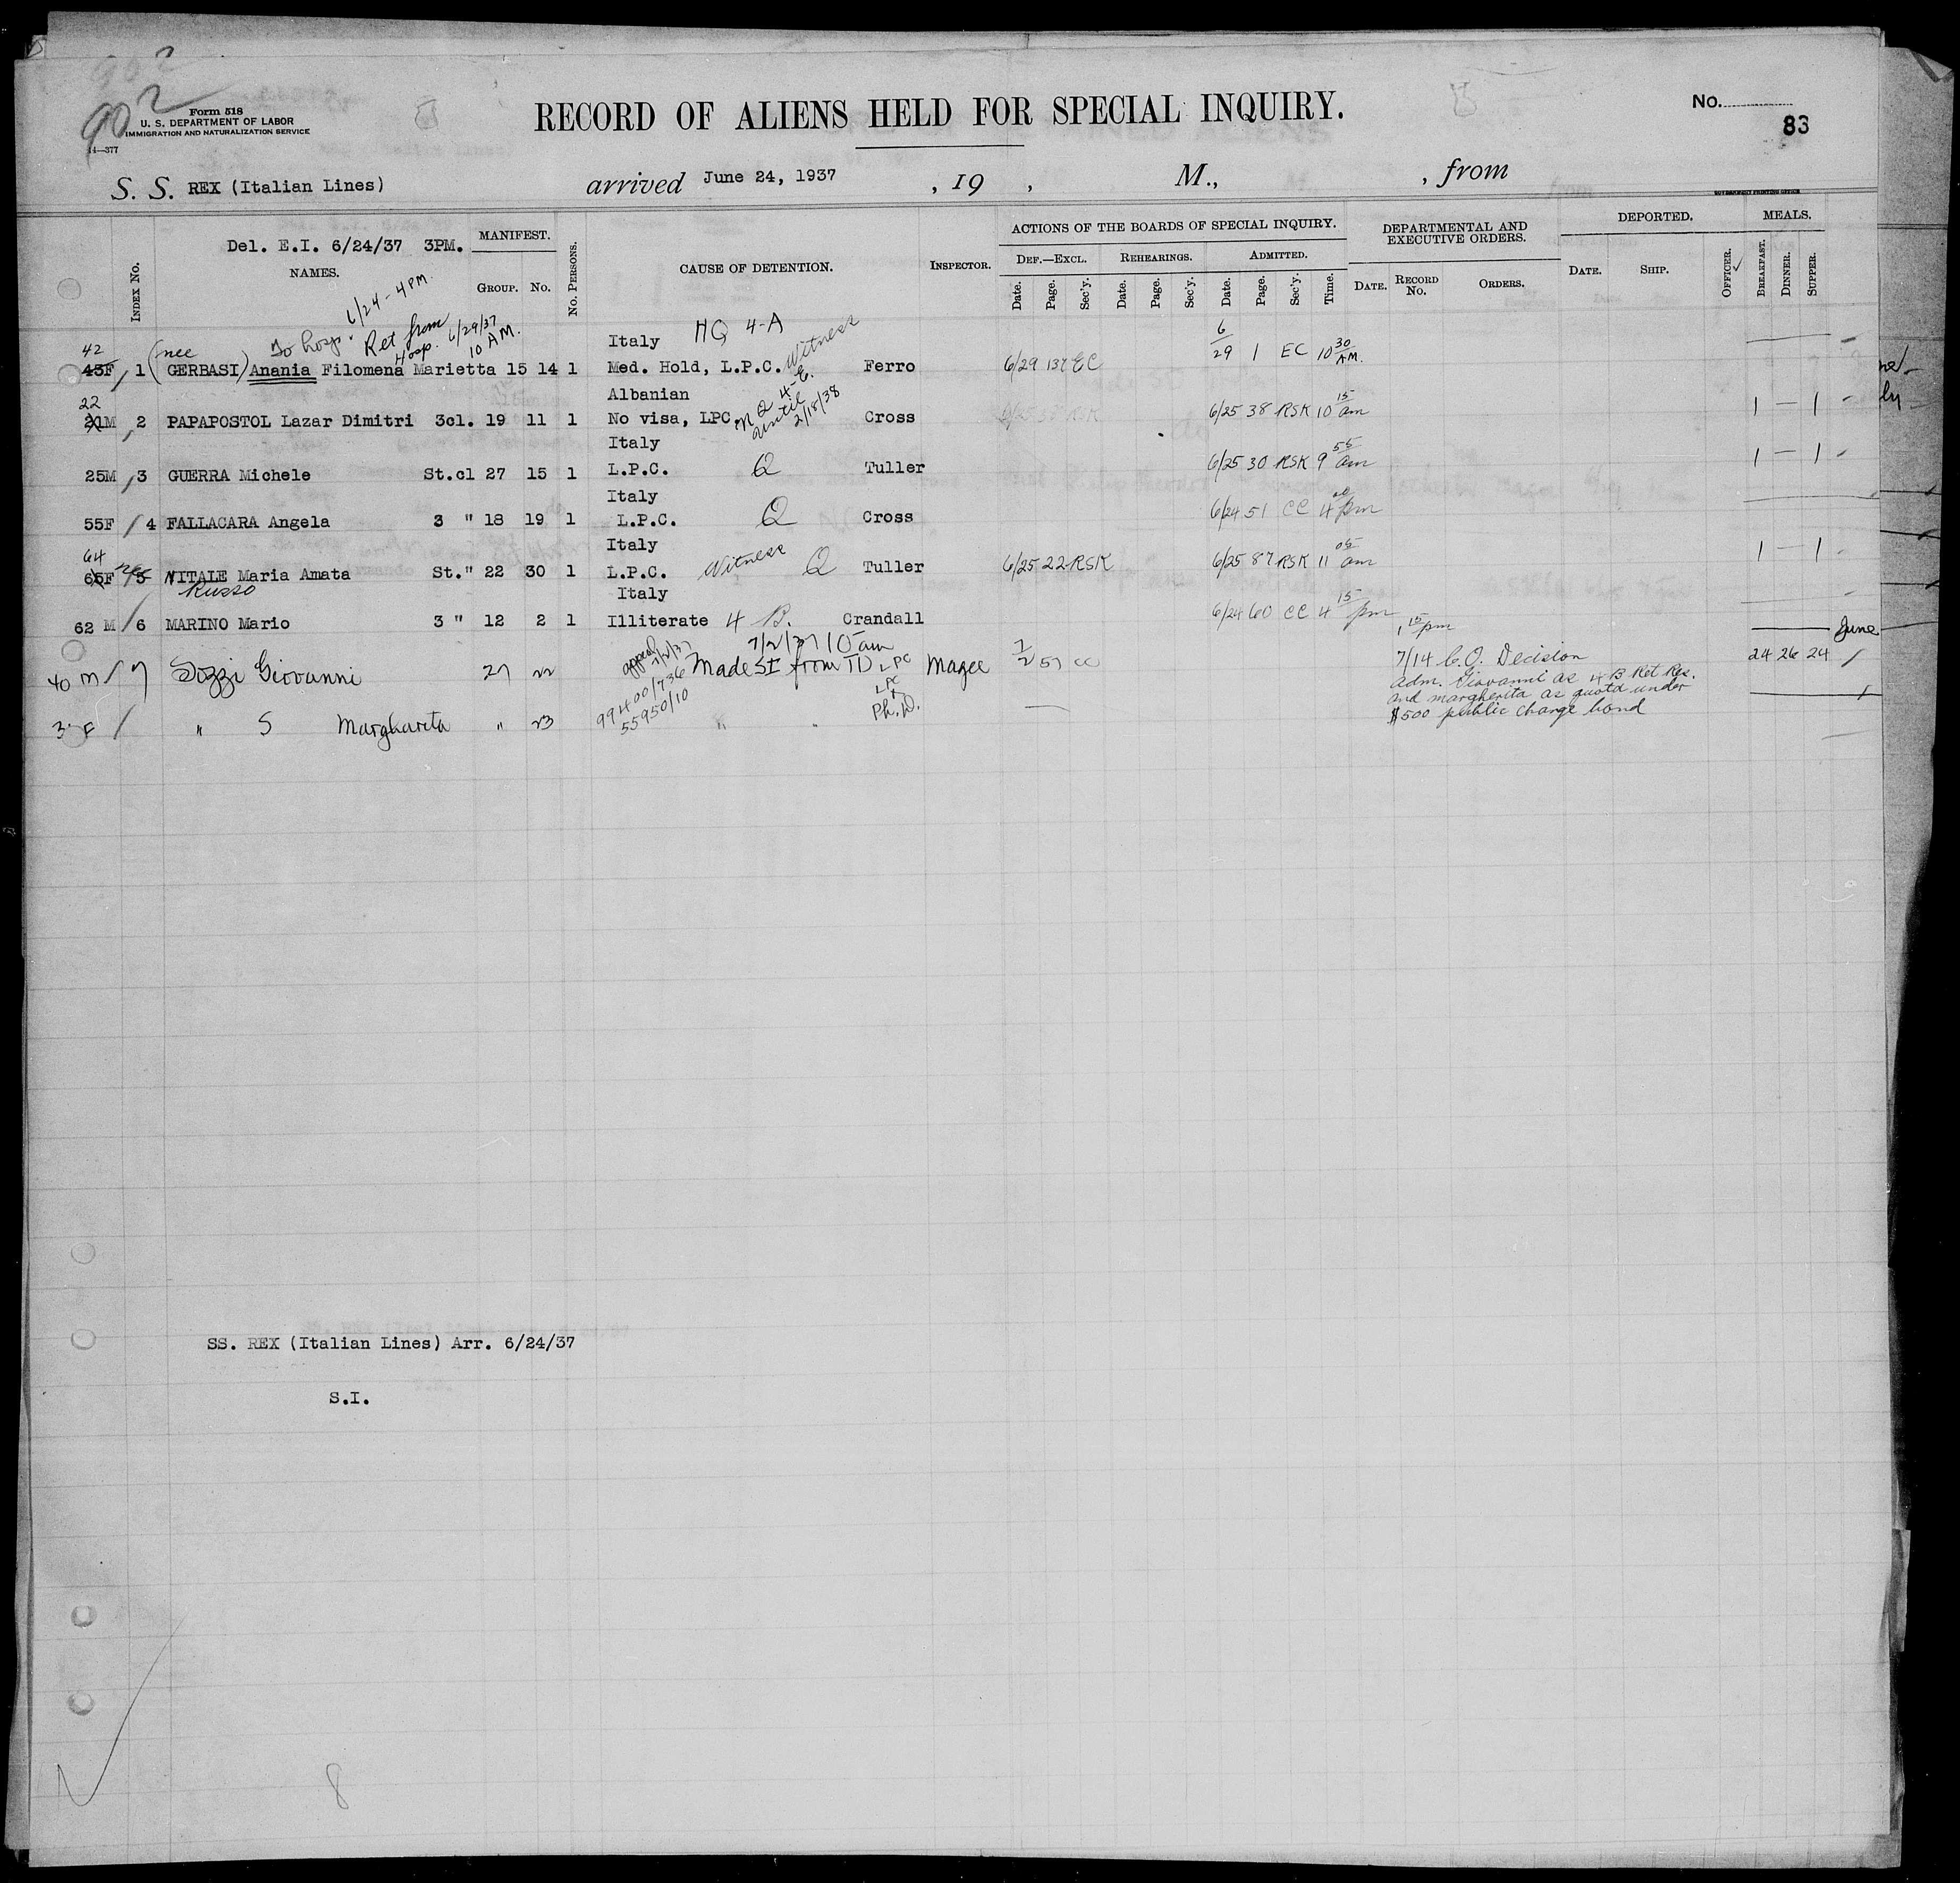 902
Form 518
U. S. DEPARTMENT OF LABOR
IMMIGRATION AND NATURALIZATION SERVICE
14—377
RECORD OF ALIENS HELD FOR SPECIAL INQUIRY.
No.
83
S. S. REX (Italian Lines) arrived June 24, 1937 , 19 , M., , from
GOVERNMENT PRINTING OFFICE
INDEX No. Del. E.I. 6/24/37 3PM. NAMES. MANIFEST. GROUP. No. No. PERSONS. CAUSE OF DETENTION. INSPECTOR.
ACTIONS OF THE BOARDS OF SPECIAL INQUIRY. DEF.—EXCL. REHEARINGS. ADMITTED.
Date. Page. Sec'y. Date. Page. Sec'y. Date. Page. Sec'y. Time.
DEPARTMENTAL AND EXECUTIVE ORDERS. DATE. RECORD No. ORDERS.
DEPORTED. DATE. SHIP. OFFICER.
MEALS. BREAKFAST. DINNER. SUPPER.
To hosp. 6/24 - 4 PM. Ret from Hosp. 6/29/37 10 A.M.
Italy HQ 4-A Witness
42 43F / 1 (nee GERBASI) Anania Filomena Marietta 15 14 1 Med. Hold, L.P.C. Ferro 6/29 137 EC 6/29 1 EC 10 30 AM.
Albanian
22 21M / 2 PAPAPOSTOL Lazar Dimitri 3cl. 19 11 1 No visa, LPC Q 4-E. until 2/18/38 Cross 6/25 38 RSK 10 15 am 1 — 1
Italy
25M / 3 GUERRA Michele St.cl 27 15 1 L.P.C. Q Tuller 6/25 30 RSK 9 55 am 1 — 1
Italy
55F / 4 FALLACARA Angela 3 " 18 19 1 L.P.C. Q Cross 6/24 51 CC 4 00 pm
Italy
64 65F / 5 nee VITALE Maria Amata St." 22 30 1 L.P.C. Witness Q Tuller 6/25 22 RSK 6/25 87 RSK 11 05 am 1 — 1
Russo
Italy
62 M / 6 MARINO Mario 3 " 12 2 1 Illiterate 4 B. Crandall 6/24 60 CC 4 15 pm
appeal 7/2/37 7/2/37 10 am 1 15 pm June
40 m / 7 Sozzi Giovanni 27 22 Made SI from TD LPC Magee 7/2 57 CC 7/14 C.O. Decision 24 26 24 /
adm. Giovanni as 4-B Ret Res.
and margherita as quota under
$500 public charge bond
99400/736
55950/10
F / " S Margharita " 23 " LPC + Ph.D. —
SS. REX (Italian Lines) Arr. 6/24/37
S.I.
8